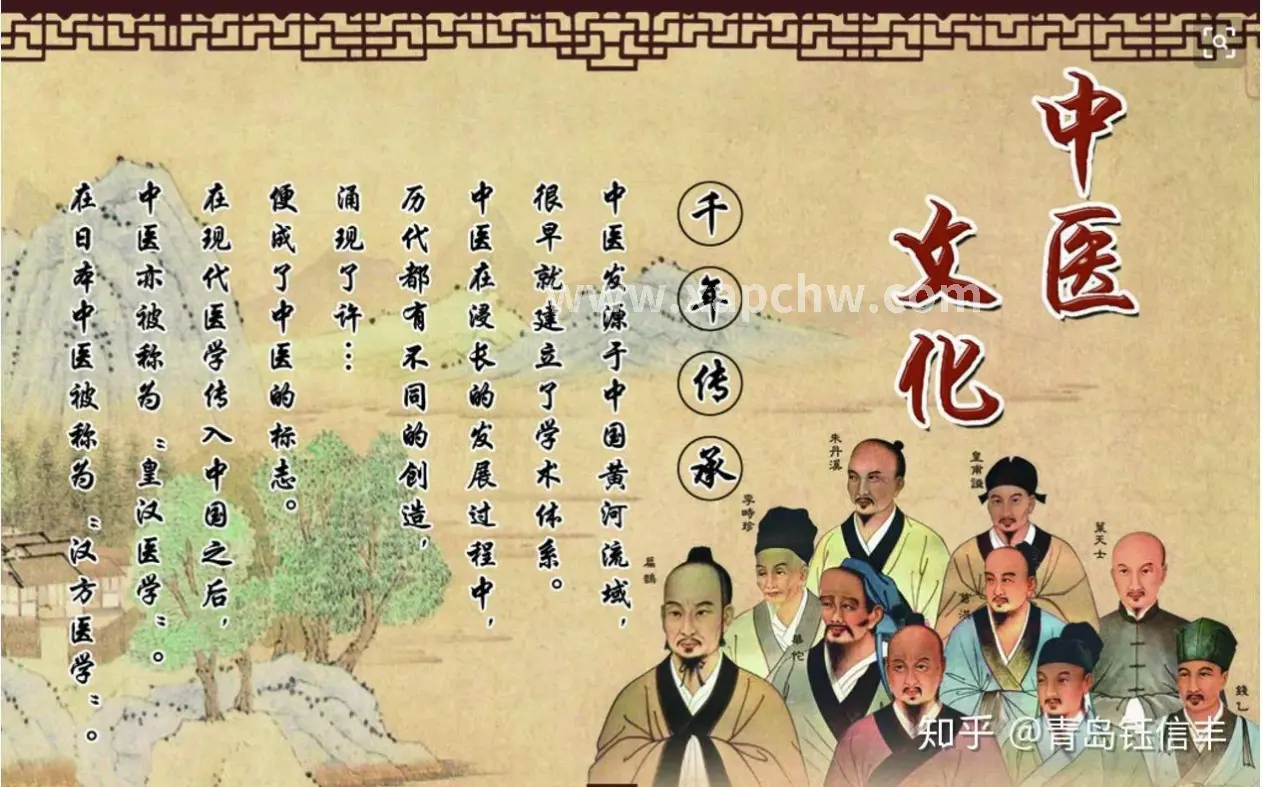 中医
文化
千年传承
中医发源于中国黄河流域，
很早就建立了学术体系。
中医在浸长的发展过程中，
历代都有不同的创造，
涌现了许…
便成了中医的标志。
在现代医学传入中国之后，
中医亦被称为“皇汉医学”。
在日本中医被称为“汉方医学”。
朱丹溪
皇甫謐
李時珍
葉天士
扁鵲
葛洪
華佗
錢乙
www.xapchw.com
知乎 @青岛钰信丰